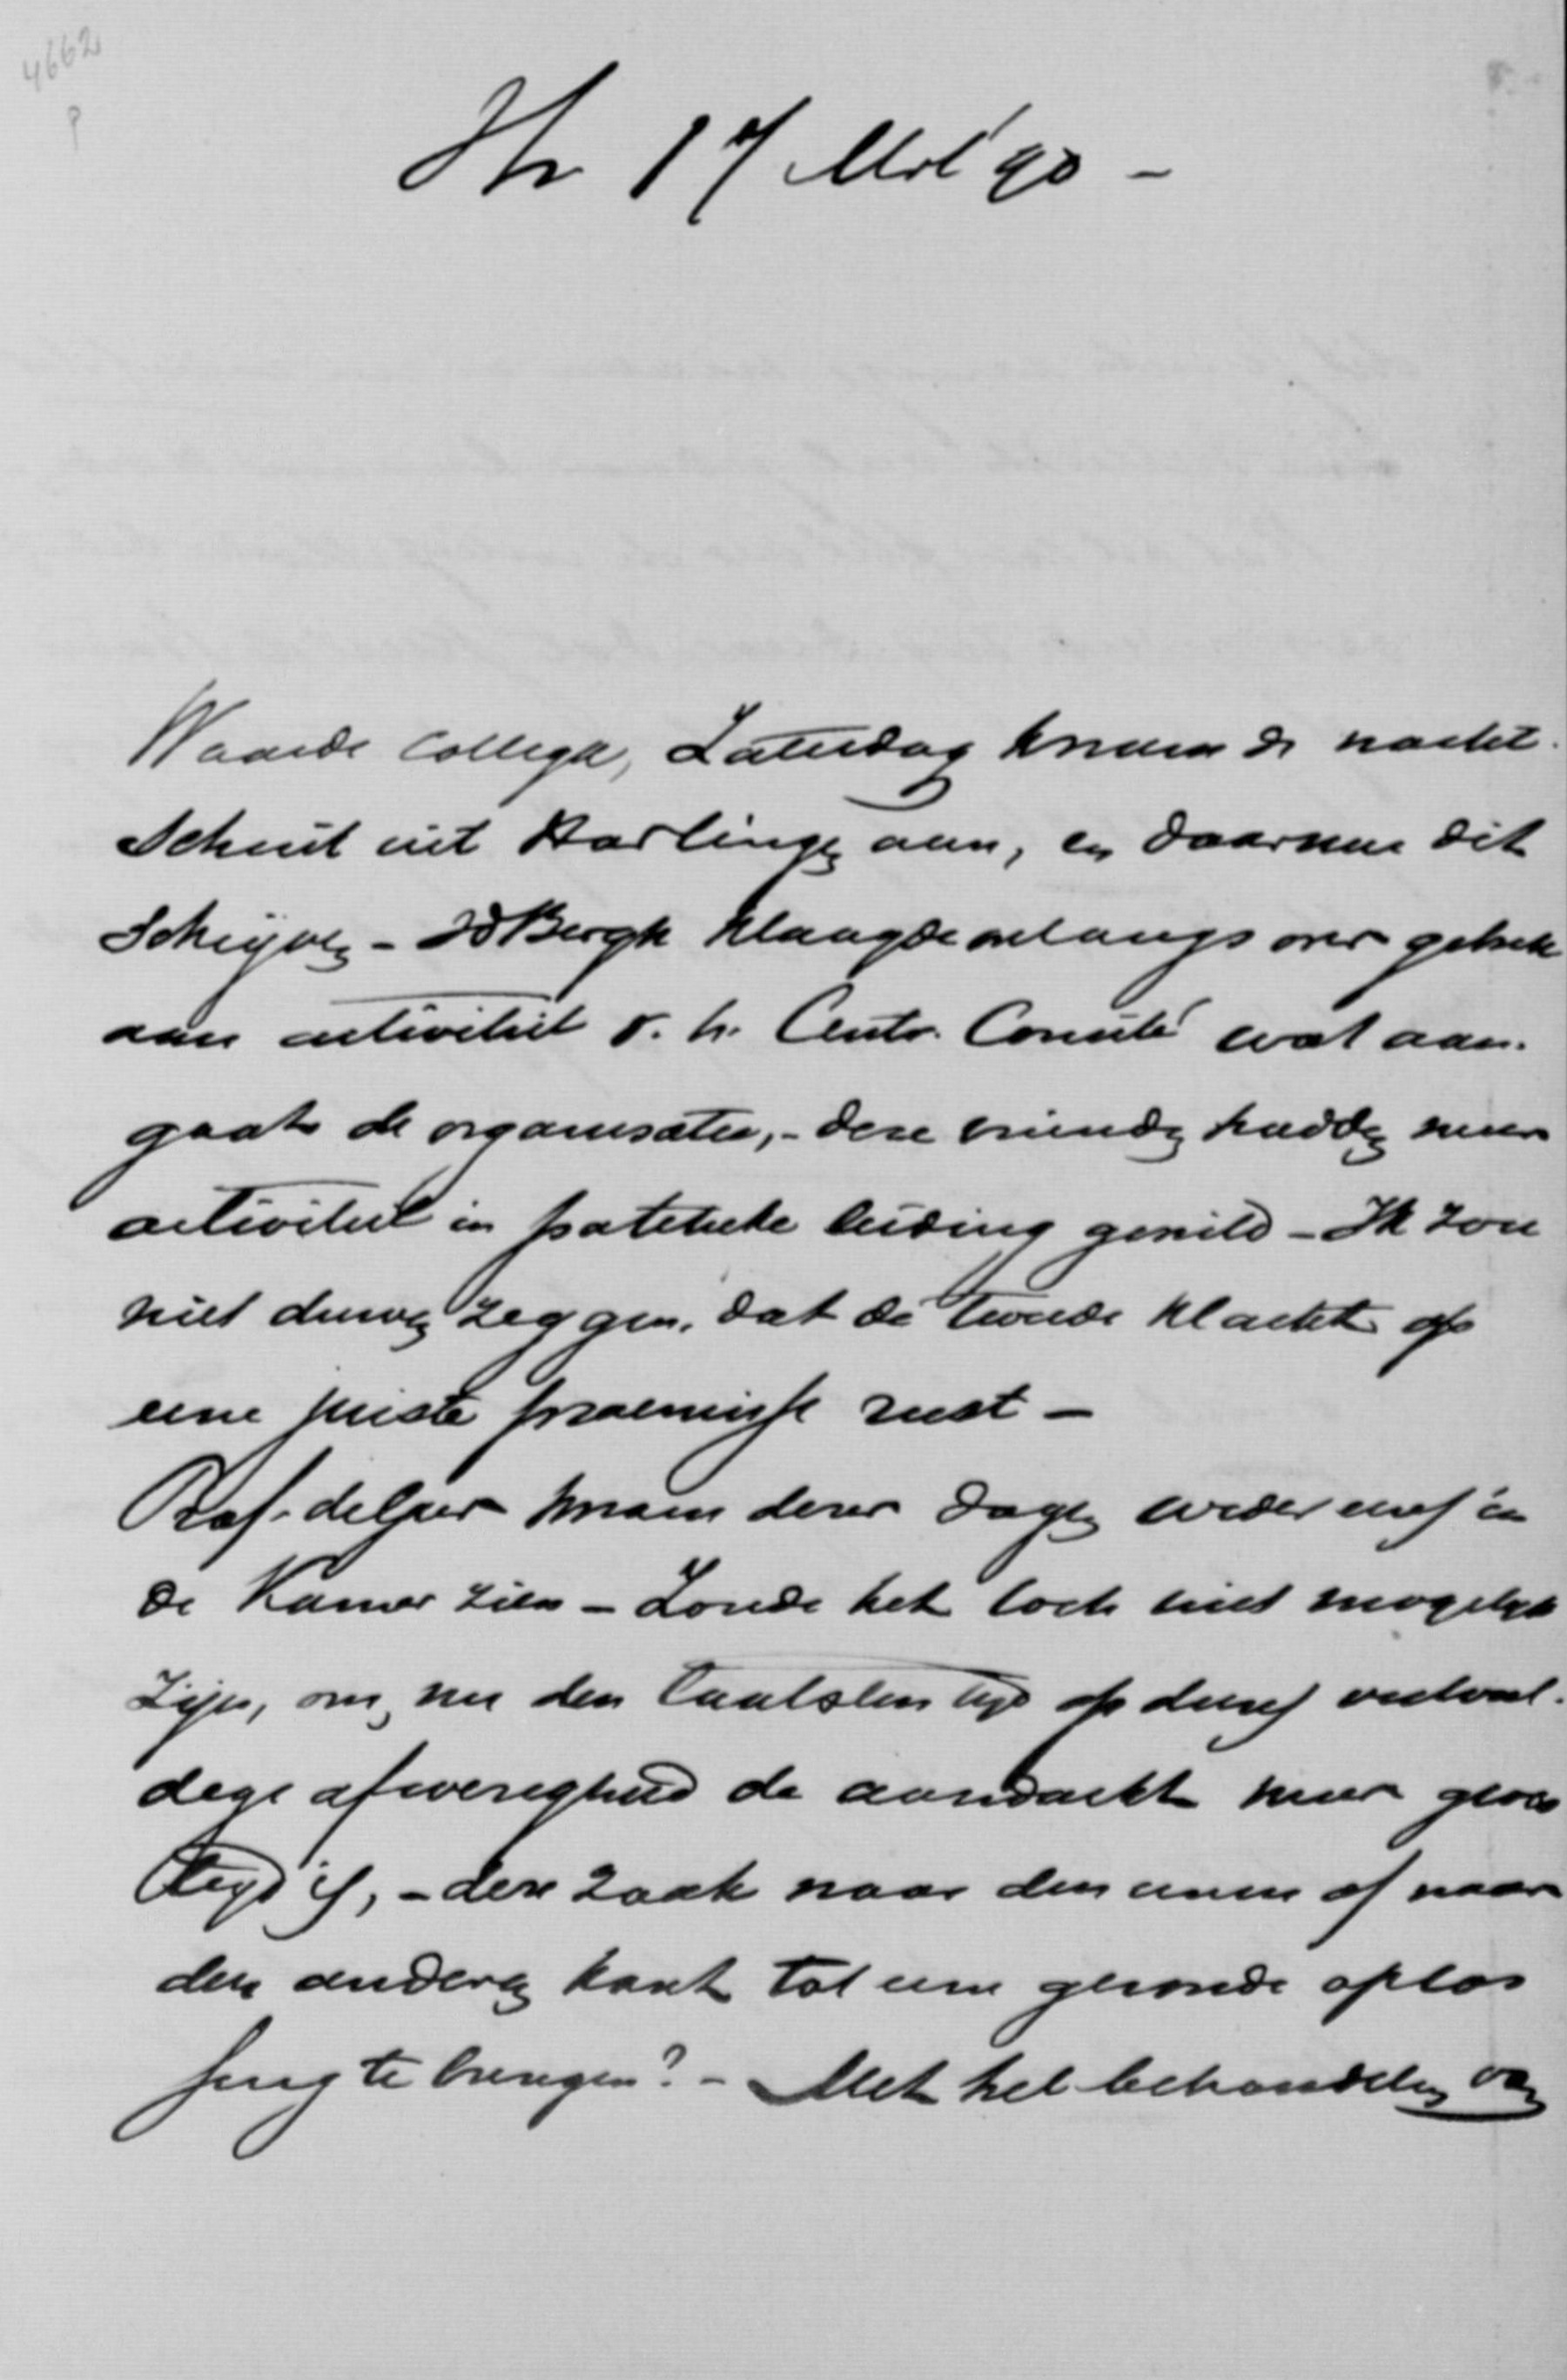 4662
P
Hr 17 Mrt '90 -
Waarde Collega, Zaterdag kwam de nacht
Schuit uit Harlingen aan, en daarmee dit
Schrijven - vd Bergh klaagde onlangs over gebrek
aan activiteit v. h. Centr. Comité wat aan-
gaat de organisatie, - deze vrienden hadden meer
activiteit in politieke leiding gewild - Ik zou
niet durven zeggen, dat de tweede klacht op
eene juiste praemisse rust -
Prof. de Geer kwam dezer dagen weder eens in
de Kamer zien - Zoude het toch niet mogelijk
zijn, om, nu den laatsten tijd op diens veelvul-
dige afwezigheid de aandacht meer geves-
tigd is, - deze zaak naar den eenen of naar
den anderen kant tot een gezonde oplos
sing te brengen? - Met het behandelen van